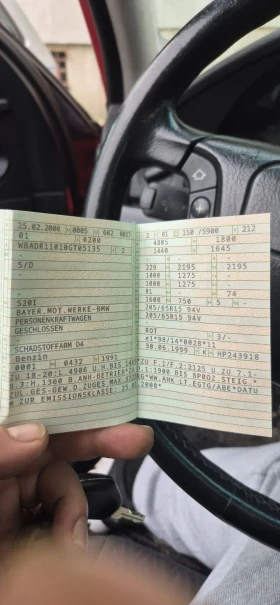 25.02.2008 0005 602
01 0200
WBADR11010GT05135 2
-
5/D
-
-
520I
BAYER.MOT.WERKE-BMW
PERSONENKRAFTWAGEN
GESCHLOSSEN
-
SCHADSTOFFARM D4
Benzin
0001 0432 1991
2 01 110 /5900 212
4805 1800
1440 1645
- - -
229 2195 2195
1008 1275 -
1008 1275 -
01 74
1600 750 5 -
205/65R15 94V
205/65R15 94V
-
ROT 3/-
e1*98/14*0028*11
30.06.1999 K HP243918
ZU 18-20:L.4906 U.H.BIS
ZU F.1/F.2:2125 U.ZU 7.1-
8.3:H.1360 B.ANH-BETRIEB*
D.1:1900 BIS 8PROZ.STEIG.*
ZUL.GES-GEW.D.ZUGES MAX.
*WW.AHK LT.EGTG/ABE*DATU
M ZUR EMISSIONSKLASSE: